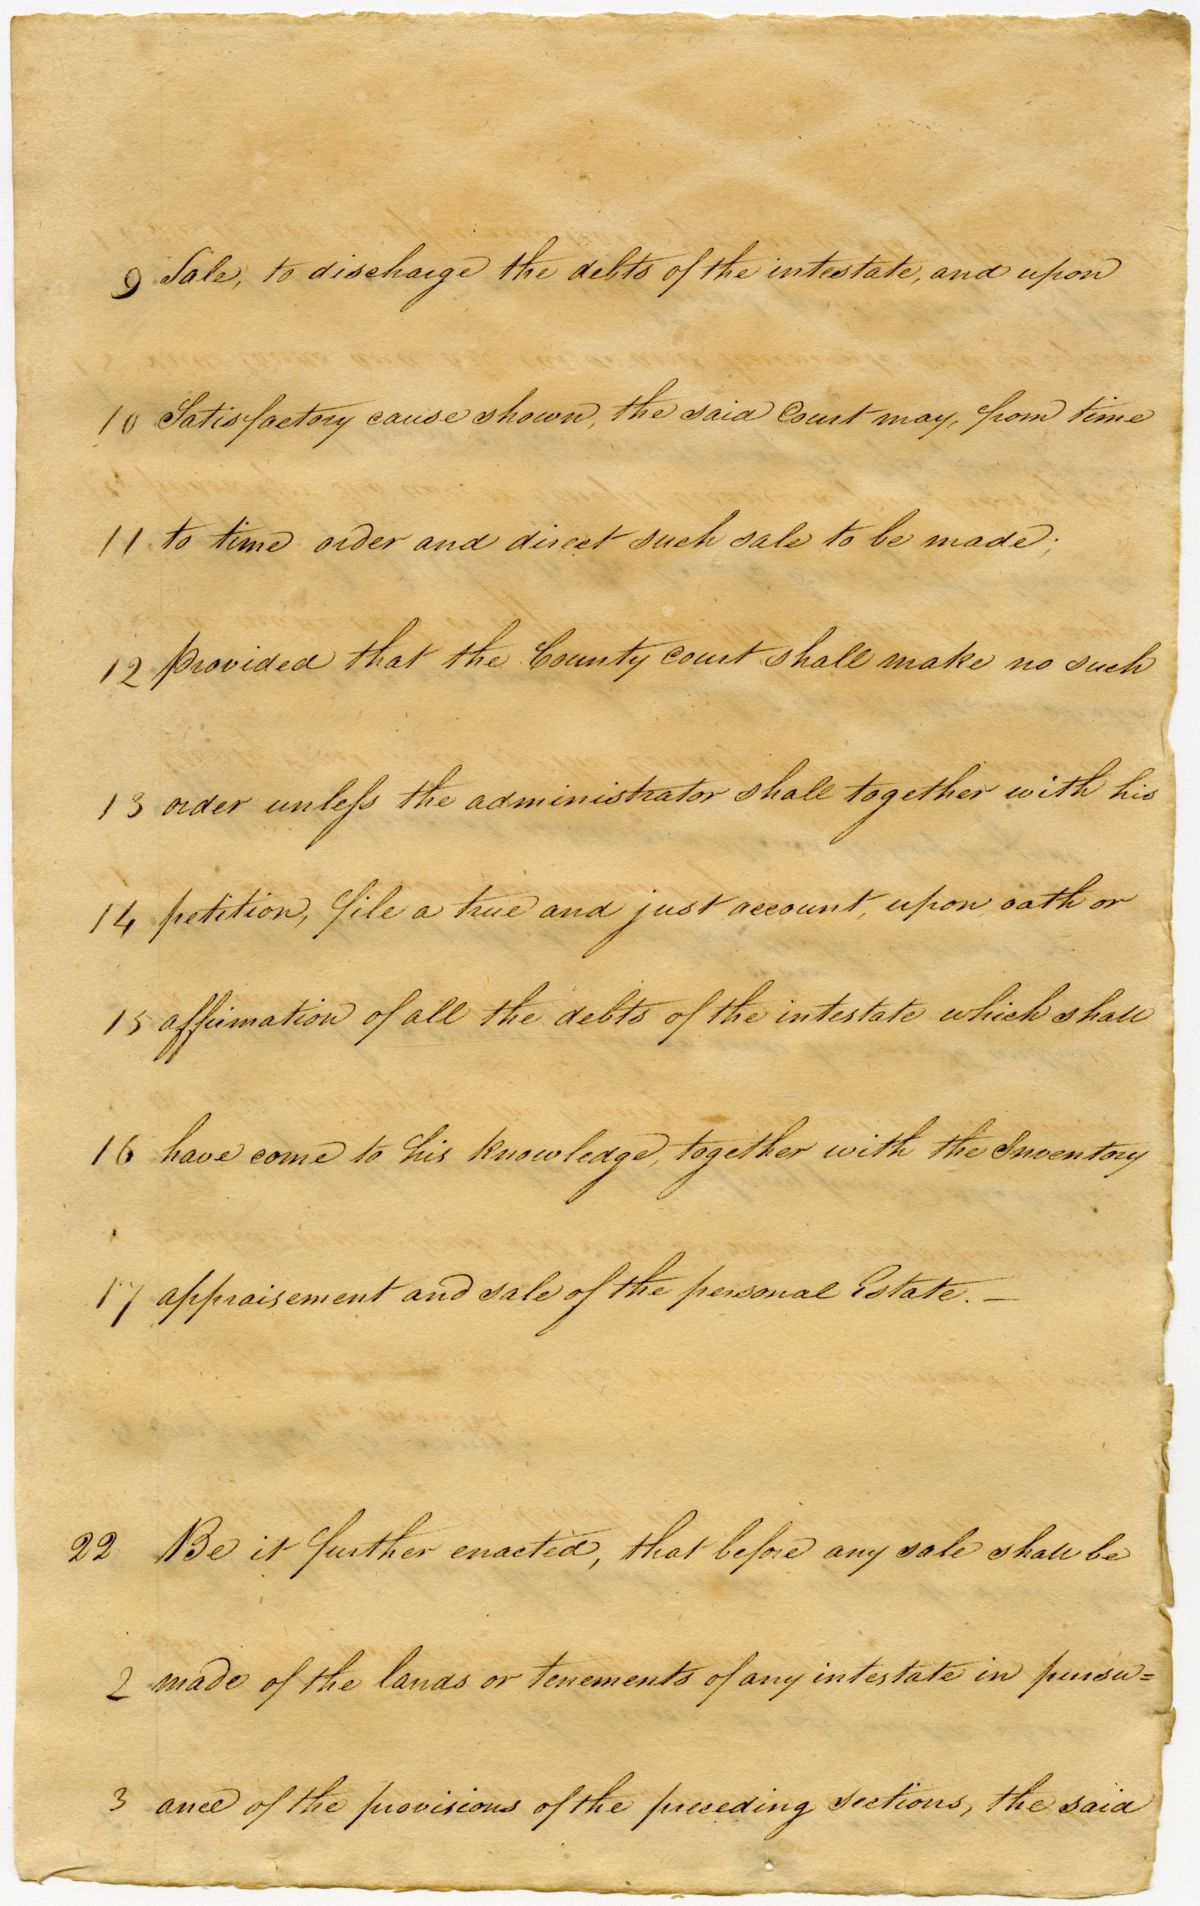 9 Sale, to discharge the debts of the intestate, and upon
10 Satisfactory cause shown, the said Court may, from time
11 to time order and direct such sale to be made;
12 Provided that the County court shall make no such
13 order unless the administrator shall together with his
14 petition, file a true and just account, upon oath or
15 affirmation of all the debts of the intestate which shall
16 have come to his knowledge, together with the Inventory
17 appraisement and sale of the personal Estate. —
22 Be it further enacted, that before any sale shall be
2 made of the lands or tenements of any intestate in pursu=
3 ance of the provisions of the preceding sections, the said